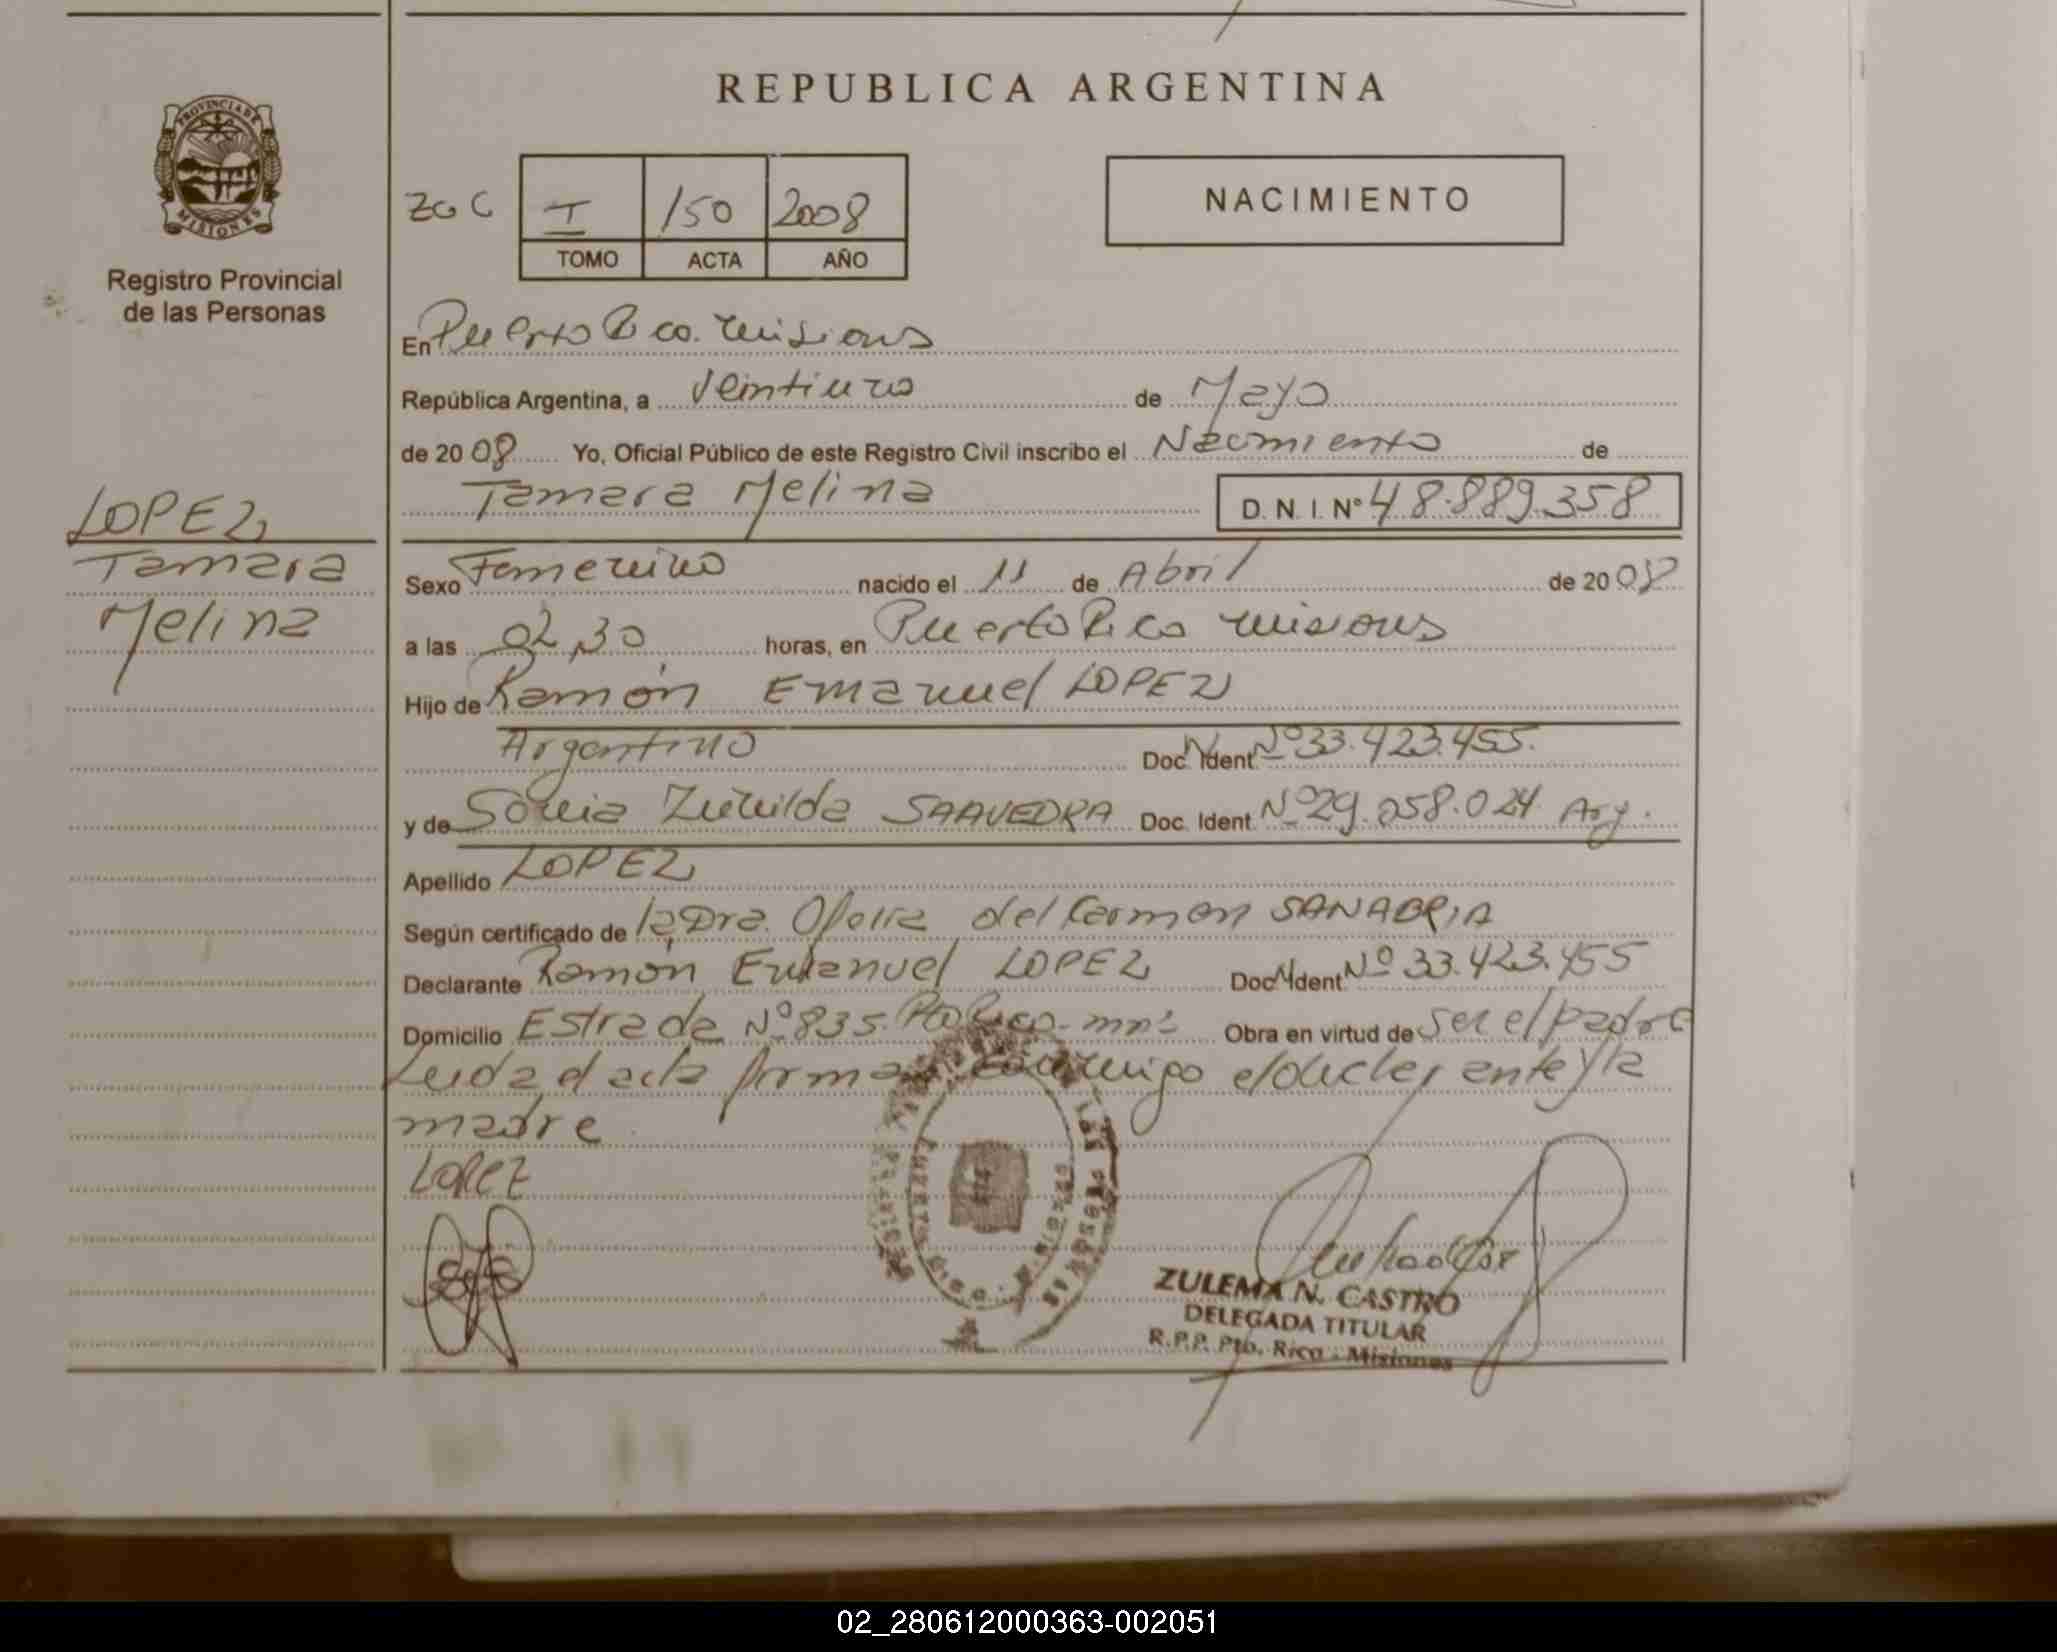 REPUBLICA ARGENTINA
PROVINCIA DE
MISIONES
Registro Provincial
de las Personas
NACIMIENTO
I 150 2008
TOMO ACTA AÑO
En Puerto Rico. Misiones
República Argentina, a Veintiuno de Mayo
de 2008 Yo, Oficial Público de este Registro Civil inscribo el Nacimiento de
Tamara Melina D. N. I. Nº 48.889.358
LOPEZ
Tamara
Melina
Sexo Femenino nacido el 11 de Abril de 2008
a las 02,30 horas, en Puerto Rico Misiones
Hijo de Ramón Emanuel LOPEZ
Argentino Doc. Ident. Nº 33.423.455.
y de Sonia Zunilda SAAVEDRA Doc. Ident. Nº 29.058.024 Arg.
Apellido LOPEZ
Según certificado de la Dra. Ofelia del Carmen SANABRIA
Declarante Ramón Emanuel LOPEZ Doc. Ident. Nº 33.423.455
Domicilio Estrada Nº 835. Pto Rico - mns Obra en virtud de ser el padre
Leida el acta firman conmigo el declarante y la
madre
LOPEZ
ZULEMA N. CASTRO
DELEGADA TITULAR
R.P.P. Pto. Rico - Misiones
02_280612000363-002051